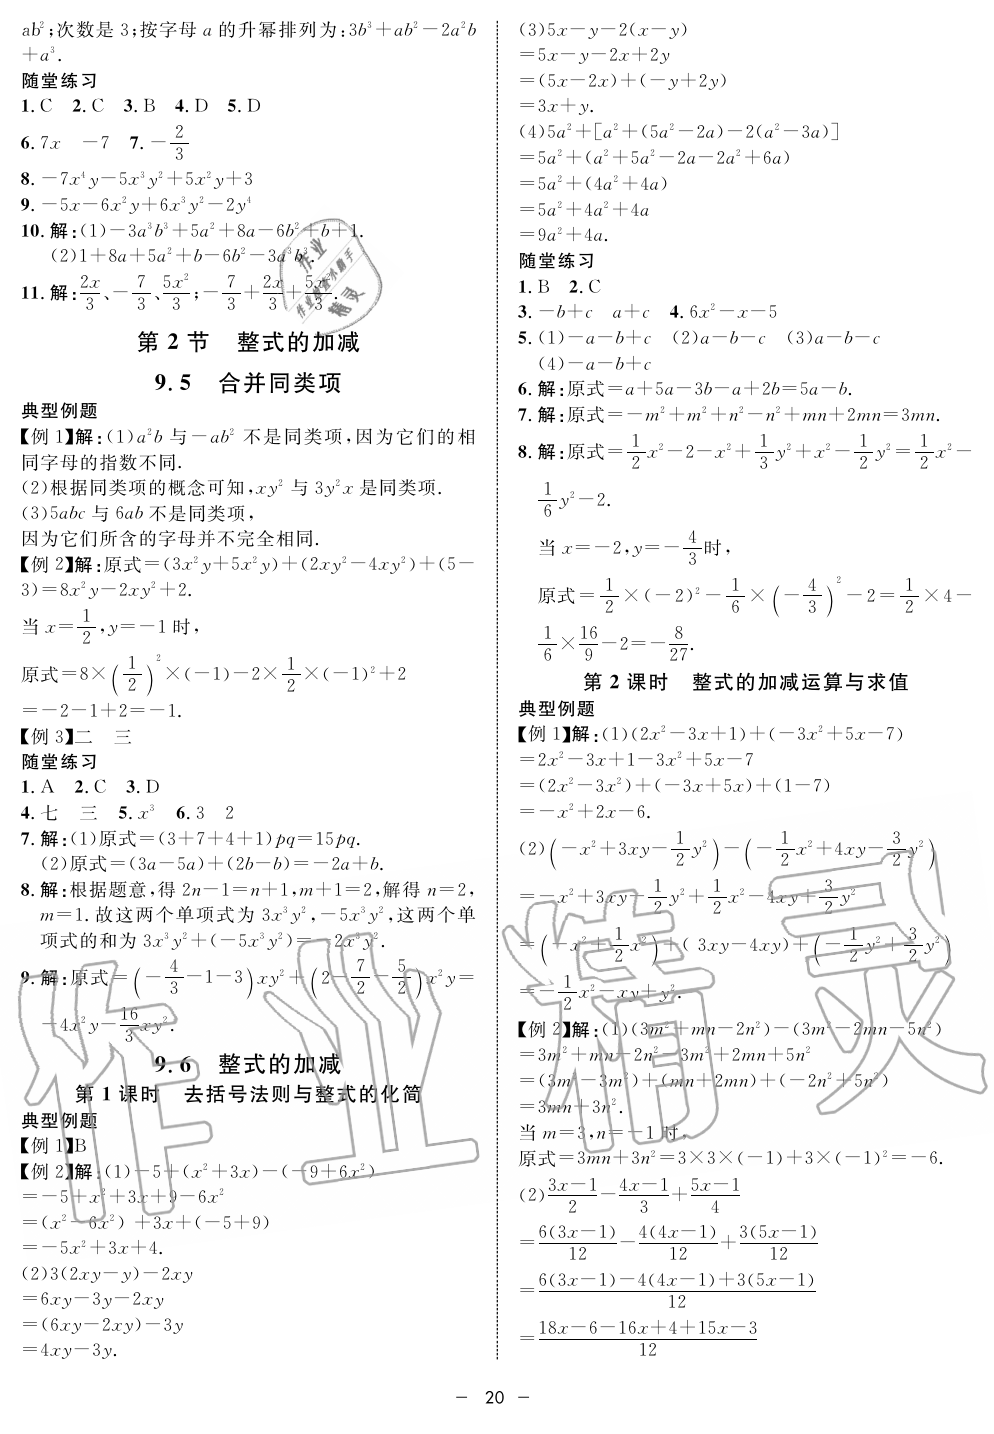 ab²;次数是 3;按字母 a 的升幂排列为:3b³+ab²−2a²b
+a³.
随堂练习
1.C 2.C 3.B 4.D 5.D
6.7x −7 7.−2/3
8.−7x⁴y−5x³y²+5x²y+3
9.−5x−6x²y+6x³y²−2y⁴
10.解:(1)−3a³b³+5a²+8a−6b²+b+1.
(2)1+8a+5a²+b−6b²−3a³b³.
11.解:2x/3、−7/3、5x²/3;−7/3+2x/3+5x²/3.
第 2 节 整式的加减
9.5 合并同类项
典型例题
【例 1】解:(1)a²b 与−ab² 不是同类项,因为它们的相
同字母的指数不同.
(2)根据同类项的概念可知,xy² 与 3y²x 是同类项.
(3)5abc 与 6ab 不是同类项,
因为它们所含的字母并不完全相同.
【例 2】解:原式=(3x²y+5x²y)+(2xy²−4xy²)+(5−
3)=8x²y−2xy²+2.
当 x=1/2,y=−1 时,
原式=8×(1/2)²×(−1)−2×1/2×(−1)²+2
=−2−1+2=−1.
【例 3】二 三
随堂练习
1.A 2.C 3.D
4.七 三 5.x³ 6.3 2
7.解:(1)原式=(3+7+4+1)pq=15pq.
(2)原式=(3a−5a)+(2b−b)=−2a+b.
8.解:根据题意,得 2n−1=n+1,m+1=2,解得 n=2,
m=1.故这两个单项式为 3x³y²,−5x³y²,这两个单
项式的和为 3x³y²+(−5x³y²)=−2x³y².
9.解:原式=(−4/3−1−3)xy²+(2−7/2−5/2)x²y=
−4x²y−16/3xy².
9.6 整式的加减
第 1 课时 去括号法则与整式的化简
典型例题
【例 1】B
【例 2】解:(1)−5+(x²+3x)−(−9+6x²)
=−5+x²+3x+9−6x²
=(x²−6x²)+3x+(−5+9)
=−5x²+3x+4.
(2)3(2xy−y)−2xy
=6xy−3y−2xy
=(6xy−2xy)−3y
=4xy−3y.
(3)5x−y−2(x−y)
=5x−y−2x+2y
=(5x−2x)+(−y+2y)
=3x+y.
(4)5a²+[a²+(5a²−2a)−2(a²−3a)]
=5a²+(a²+5a²−2a−2a²+6a)
=5a²+(4a²+4a)
=5a²+4a²+4a
=9a²+4a.
随堂练习
1.B 2.C
3.−b+c a+c 4.6x²−x−5
5.(1)−a−b+c (2)a−b−c (3)a−b−c
(4)−a−b+c
6.解:原式=a+5a−3b−a+2b=5a−b.
7.解:原式=−m²+m²+n²−n²+mn+2mn=3mn.
8.解:原式=1/2x²−2−x²+1/3y²+x²−1/2y²=1/2x²−
1/6y²−2.
当 x=−2,y=−4/3时,
原式=1/2×(−2)²−1/6×(−4/3)²−2=1/2×4−
1/6×16/9−2=−8/27.
第 2 课时 整式的加减运算与求值
典型例题
【例 1】解:(1)(2x²−3x+1)+(−3x²+5x−7)
=2x²−3x+1−3x²+5x−7
=(2x²−3x²)+(−3x+5x)+(1−7)
=−x²+2x−6.
(2)(−x²+3xy−1/2y²)−(−1/2x²+4xy−3/2y²)
=−x²+3xy−1/2y²+1/2x²−4xy+3/2y²
=(−x²+1/2x²)+( 3xy−4xy)+(−1/2y²+3/2y²)
=−1/2x²−xy+y².
【例 2】解:(1)(3m²+mn−2n²)−(3m²−2mn−5n²)
=3m²+mn−2n²−3m²+2mn+5n²
=(3m²−3m²)+(mn+2mn)+(−2n²+5n²)
=3mn+3n².
当 m=3,n=−1 时,
原式=3mn+3n²=3×3×(−1)+3×(−1)²=−6.
(2)(3x−1)/2−(4x−1)/3+(5x−1)/4
=6(3x−1)/12−4(4x−1)/12+3(5x−1)/12
=[6(3x−1)−4(4x−1)+3(5x−1)]/12
=(18x−6−16x+4+15x−3)/12
− 20 −
作业精灵